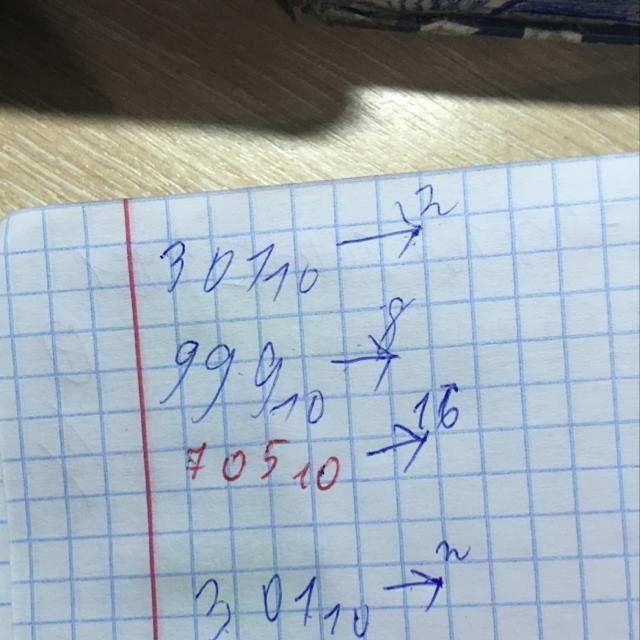 301₁₀ → 2
999₁₀ → 8
705₁₀ → 16
301₁₀ → 2